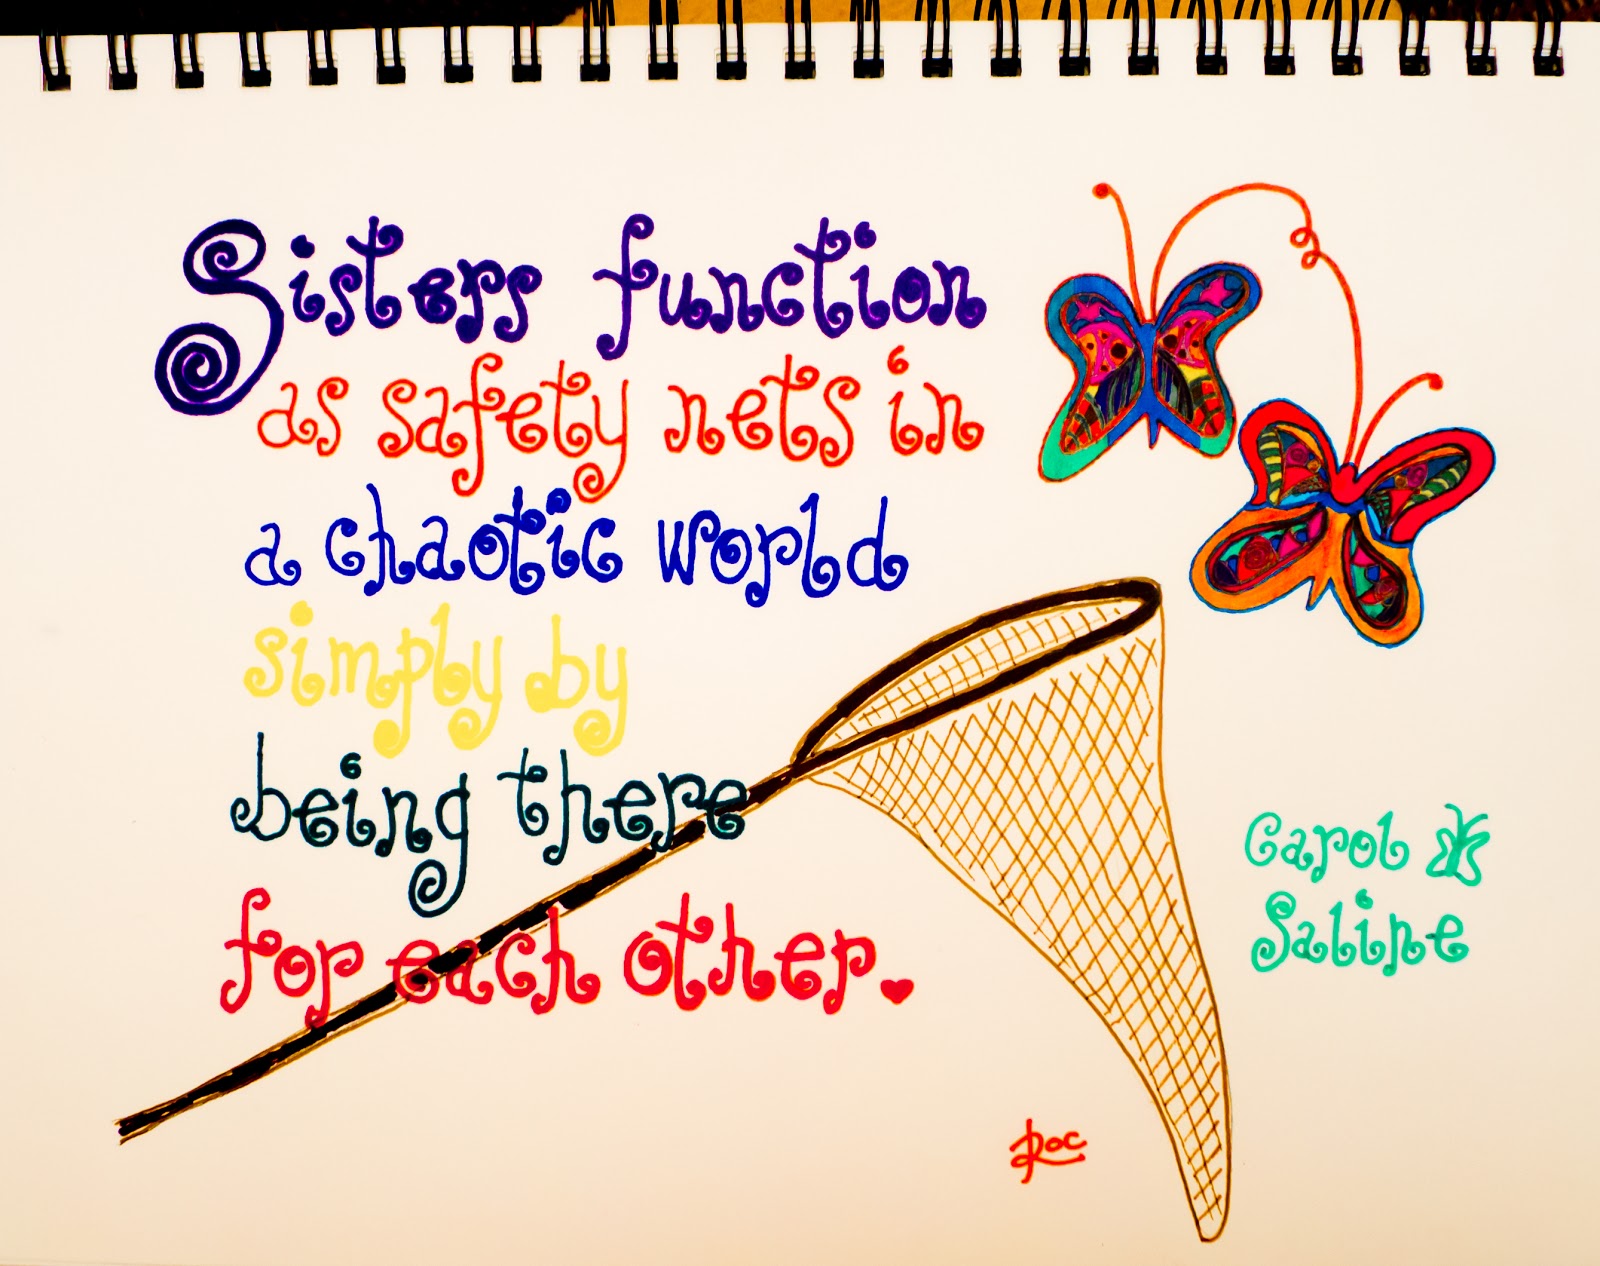 Sisters function
as safety nets in
a chaotic world
simply by
being there
for each other.
Carol
Saline
Roc